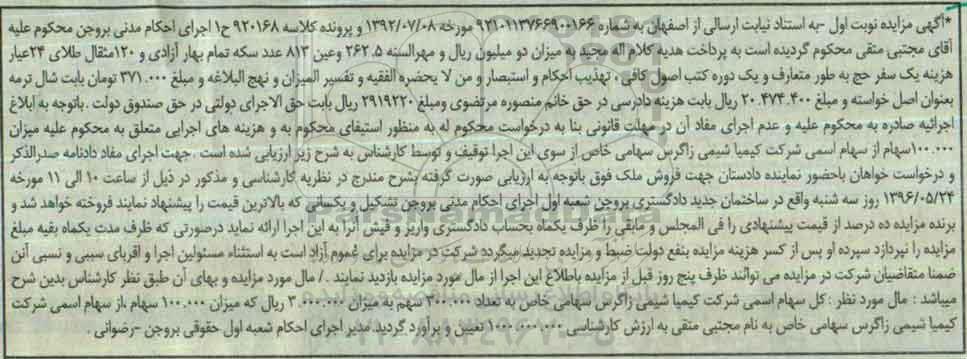 *آگهی مزایده نوبت اول -به استناد نیابت ارسالی از اصفهان به شماره ۹۲۱۰۱۱۳۷۶۶۹۰۰۱۶۶ مورخه ۱۳۹۲/۰۷/۰۸ و پرونده کلاسه ۹۲۰۱۶۸ ح۱ اجرای احکام مدنی بروجن محکوم علیه
آقای مجتبی متقی محکوم گردیده است به پرداخت هدیه کلام اله مجید به میزان دو میلیون ریال و مهرالسنه ۲۶۲.۵ وعین ۸۱۳ عدد سکه تمام بهار آزادی و ۱۲۰مثقال طلای ۲۴عیار
هزینه یک سفر حج به طور متعارف و یک دوره کتب اصول کافی ، تهذیب احکام و استبصار و من لا یحضره الفقیه و تفسیر المیزان و نهج البلاغه و مبلغ ۳۷۱.۰۰۰ تومان بابت شال ترمه
بعنوان اصل خواسته و مبلغ ۲۰.۴۷۴.۴۰۰ ریال بابت هزینه دادرسی در حق خانم منصوره مرتضوی ومبلغ ۲۹۱۹۲۲۰ ریال بابت حق الاجرای دولتی در حق صندوق دولت .باتوجه به ابلاغ
اجرائیه صادره به محکوم علیه و عدم اجرای مفاد آن در مهلت قانونی بنا به درخواست محکوم له به منظور استیفای محکوم به و هزینه های اجرایی متعلق به محکوم علیه میزان
۱۰۰.۰۰۰سهام از سهام اسمی شرکت کیمیا شیمی زاگرس سهامی خاص از سوی این اجرا توقیف و توسط کارشناس به شرح زیر ارزیابی شده است .جهت اجرای مفاد دادنامه صدرالذکر
و درخواست خواهان باحضور نماینده دادستان جهت فروش ملک فوق باتوجه به ارزیابی صورت گرفته بشرح مندرج در نظریه کارشناسی و مذکور در ذیل از ساعت ۱۰ الی ۱۱ مورخه
۱۳۹۶/۰۵/۲۴ روز سه شنبه واقع در ساختمان جدید دادگستری بروجن شعبه اول اجرای احکام مدنی بروجن تشکیل و بکسانی که بالاترین قیمت را پیشنهاد نمایند فروخته خواهد شد و
برنده مزایده ده درصد از قیمت پیشنهادی را فی المجلس و مابقی را ظرف یکماه بحساب دادگستری واریز و فیش آنرا به این اجرا ارائه نماید درصورتی که ظرف مدت یکماه بقیه مبلغ
مزایده را نپردازد سپرده او پس از کسر هزینه مزایده بنفع دولت ضبط و مزایده تجدید میگردد شرکت در مزایده برای عموم آزاد است به استثناء مسئولین اجرا و اقربای سببی و نسبی آنن
ضمنا متقاضیان شرکت در مزایده می توانند ظرف پنج روز قبل از مزایده باطلاع این اجرا از مال مورد مزایده بازدید نمایند ./ مال مورد مزایده و بهای آن طبق نظر کارشناس بدین شرح
میباشد : مال مورد نظر : کل سهام اسمی شرکت کیمیا شیمی زاگرس سهامی خاص به تعداد ۳۰۰.۰۰۰ سهم به میزان ۳.۰۰۰.۰۰۰.۰۰۰ ریال که میزان ۱۰۰.۰۰۰ سهام ،از سهام اسمی شرکت
کیمیا شیمی زاگرس سهامی خاص به نام مجتبی متقی به ارزش کارشناسی ۱.۰۰۰.۰۰۰.۰۰۰ تعیین و برآورد گردید.مدیر اجرای احکام شعبه اول حقوقی بروجن -رضوانی .
ParsNamadData